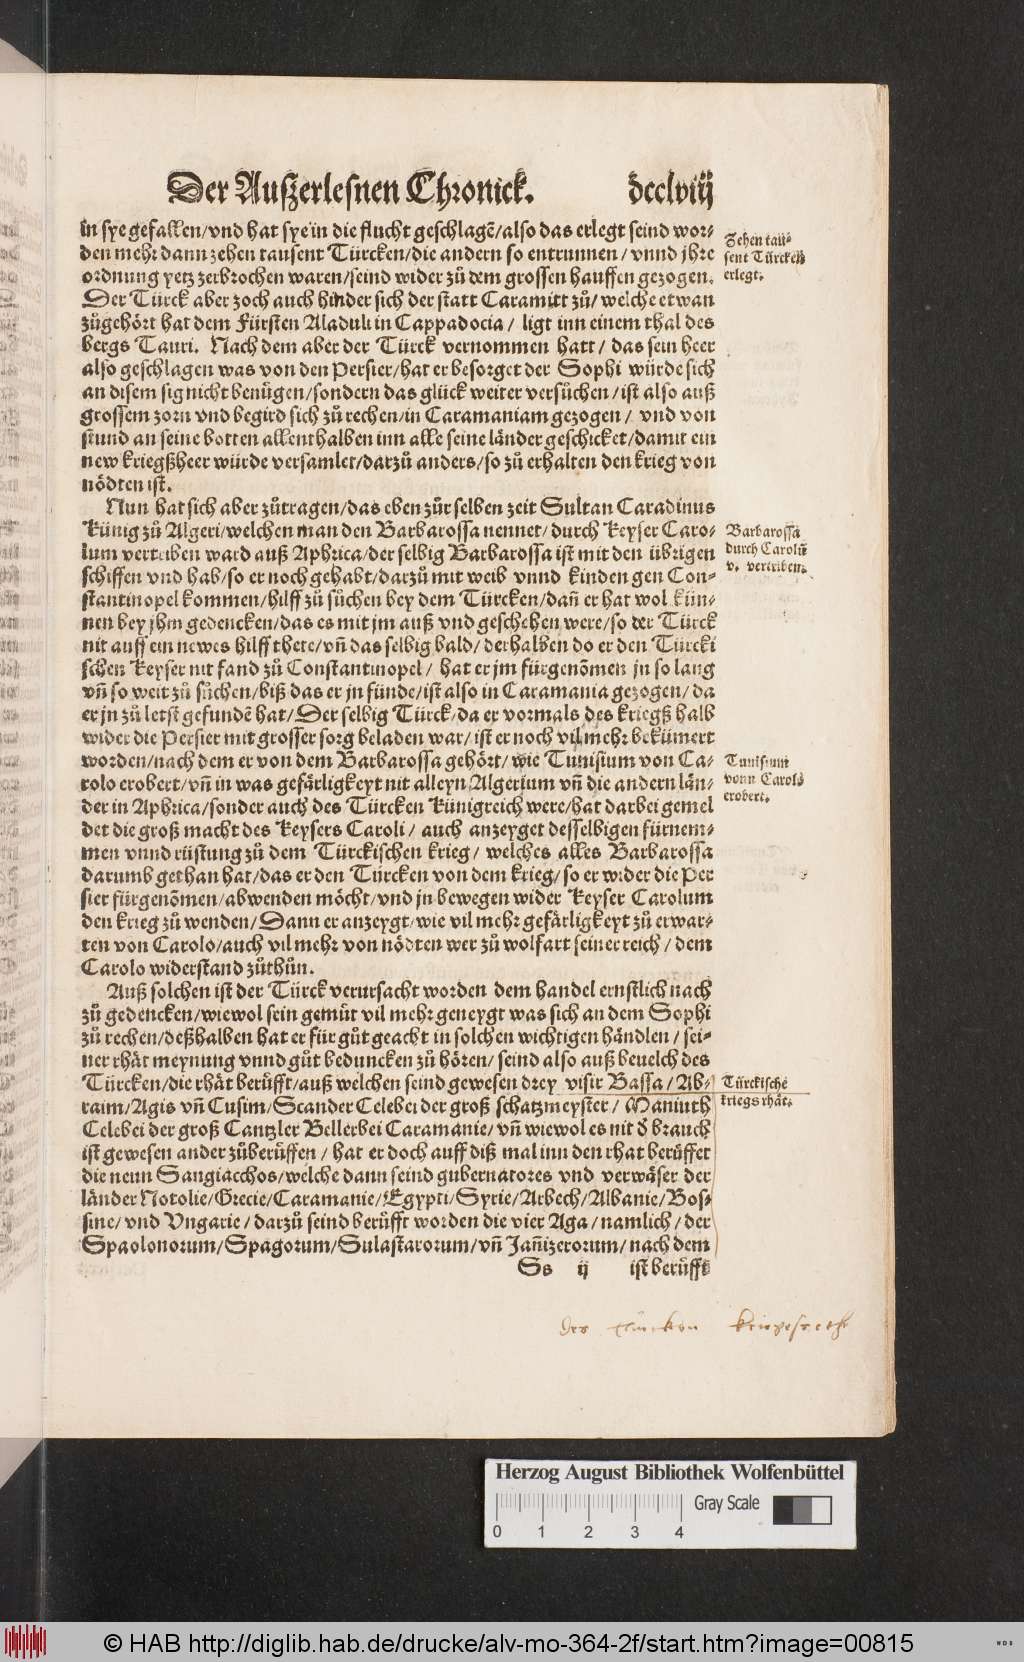 Der Außerlesnen Chronick. dcclviij
in sye gefallen/vnd hat sye in die flucht geschlagē/also das erlegt seind wor-
den mehr dann zehen tausent Türcken/die andern so entrunnen/vnnd jhre
ordnung yetz zerbrochen waren/seind wider zů dem grossen hauffen gezogen.
Zehen tau-
sent Türcken
erlegt.
Der Türck aber zoch auch hinder sich der statt Caramitt zů/welche etwan
zůgehört hat dem Fürsten Aladuli in Cappadocia/ ligt inn einem thal des
bergs Tauri. Nach dem aber der Türck vernommen hatt/das sein heer
also geschlagen was von den Persier/hat er besorget der Sophi würde sich
an disem sig nicht benůgen/sondern das glück weiter versůchen/ist also auß
grossem zorn vnd begird sich zů rechen/in Caramaniam gezogen/ vnd von
stund an seine botten allenthalben inn alle seine länder geschicket/damit ein
new kriegßheer würde versamlet/darzů anders/so zů erhalten den krieg von
nödten ist.
Nun hat sich aber zůtragen/das eben zůr selben zeit Sultan Caradinus
Künig zů Algeri/welchen man den Barbarossa nennet/durch Keyser Caro-
lum vertriben ward auß Aphrica/der selbig Barbarossa ist mit den übrigen
Barbarossa
durch Carolū
v. vertriben.
schiffen vnd hab/so er noch gehabt/darzů mit weib vnnd kinden gen Con-
stantinopel kommen/hilff zů sůchen bey dem Türcken/dañ er hat wol kün-
nen bey jhm gedencken/das es mit jm auß vnd geschehen were/so der Türck
nit auff ein newes hilff thete/vñ das selbig bald/derhalben do er den Türcki
schen Keyser nit fand zů Constantinopel/ hat er jm fürgenōmen jn so lang
vñ so weit zů sůchen/biß das er jn fünde/ist also in Caramania gezogen/da
er jn zů letst gefundē hat/Der selbig Türck/da er vormals des kriegß halb
wider die Persier mit grosser sorg beladen war/ist er noch vil mehr bekümert
worden/nach dem er von dem Barbarossa gehört/wie Tunisium von Ca-
rolo erobert/vñ in was gefärligkeyt nit alleyn Algerium vñ die andern län-
Tunisium
vonn Carolo
erobert.
der in Aphrica/sonder auch des Türcken Künigreich were/hat darbei gemel
det die groß macht des Keysers Caroli/ auch anzeyget desselbigen fürnem-
men vnnd rüstung zů dem Türckischen krieg/ welches alles Barbarossa
darumb gethan hat/das er den Türcken von dem krieg/so er wider die Per
sier fürgenōmen/abwenden möcht/vnd jn bewegen wider Keyser Carolum
den krieg zů wenden/Dann er anzeygt/wie vil mehr gefärligkeyt zů erwar-
ten von Carolo/auch vil mehr von nödten wer zů wolfart seiner reich/dem
Carolo widerstand zůthůn.
Auß solchen ist der Türck verursacht worden dem handel ernstlich nach
zů gedencken/wiewol sein gemůt vil mehr geneygt was sich an dem Sophi
zů rechen/deßhalben hat er für gůt geacht in solchen wichtigen händlen/sei-
ner rhät meynung vnnd gůt beduncken zů hören/seind also auß beuelch des
Türcken/die rhät berůfft/auß welchen seind gewesen drey visir Bassa/Ab-
Türckische
kriegs rhät.
raim/Agis vñ Cusim/Scander Celebei der groß schatzmeyster/ Maniuth
Celebei der groß Cantzler Bellerbei Caramanie/vñ wiewol es nit d brauch
ist gewesen ander zůberůffen/ hat er doch auff diß mal inn den rhat berůffet
die neun Sangiacchos/welche dann seind gubernatores vnd verwäser der
länder Notolie/Grecie/Caramanie/Egypti/Syrie/Arbech/Albanie/Bos-
sine/vnd Vngarie/darzů seind berůfft worden die vier Aga/namlich/der
Spaolonorum/Spagorum/Sulastarorum/vñ Jañizerorum/nach dem
Ss ij ist berůfft
der Türcken
Herzog August Bibliothek Wolfenbüttel
Gray Scale
0 1 2 3 4
© HAB http://diglib.hab.de/drucke/alv-mo-364-2f/start.htm?image=00815